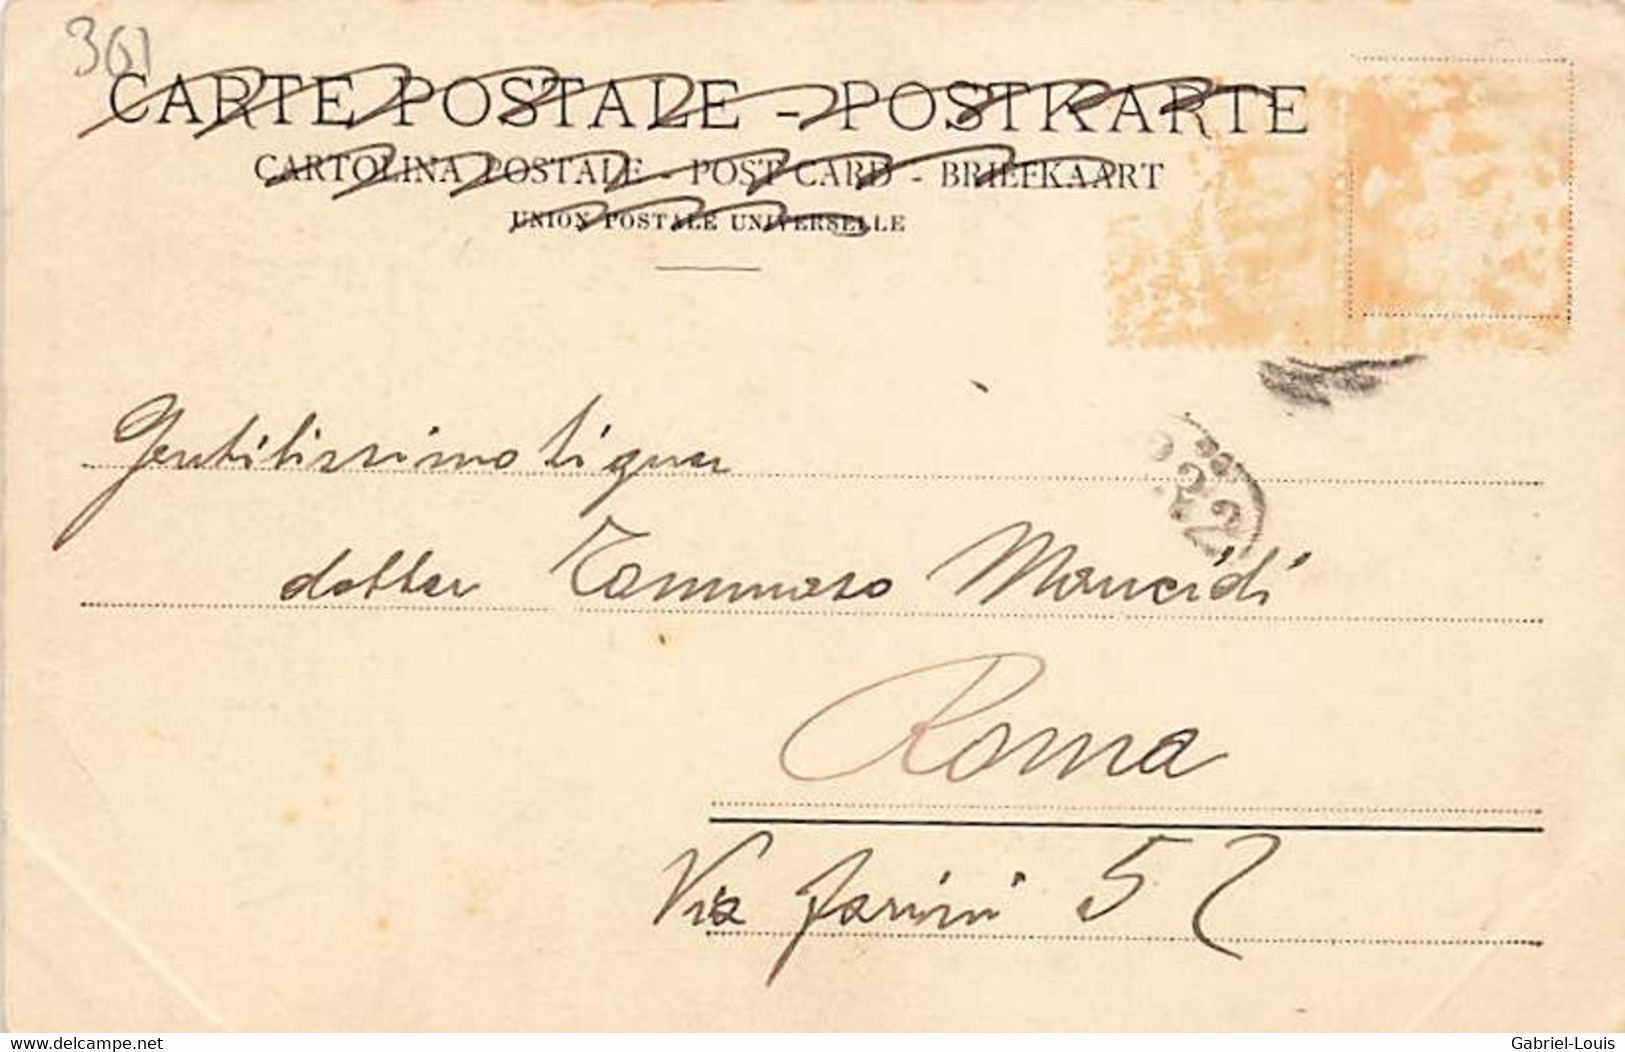 361
CARTE POSTALE - POSTKARTE
CARTOLINA POSTALE - POST CARD - BRIEFKAART
UNION POSTALE UNIVERSELLE
Gentilissimo Signor
dottor Tommaso Mancidi
Roma
Via Farini 52
delcampe.net
Gabriel-Louis